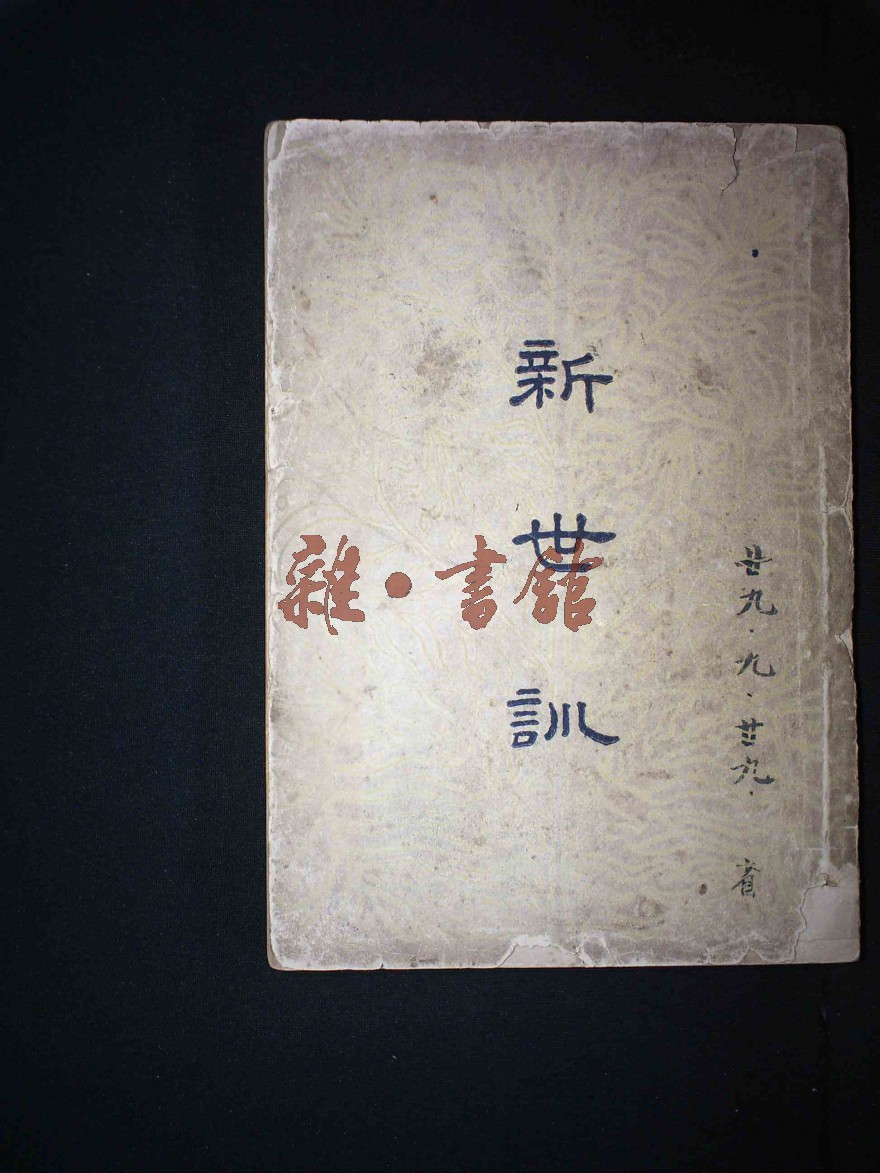 新世訓
廿九.九.廿九.
雜·書館